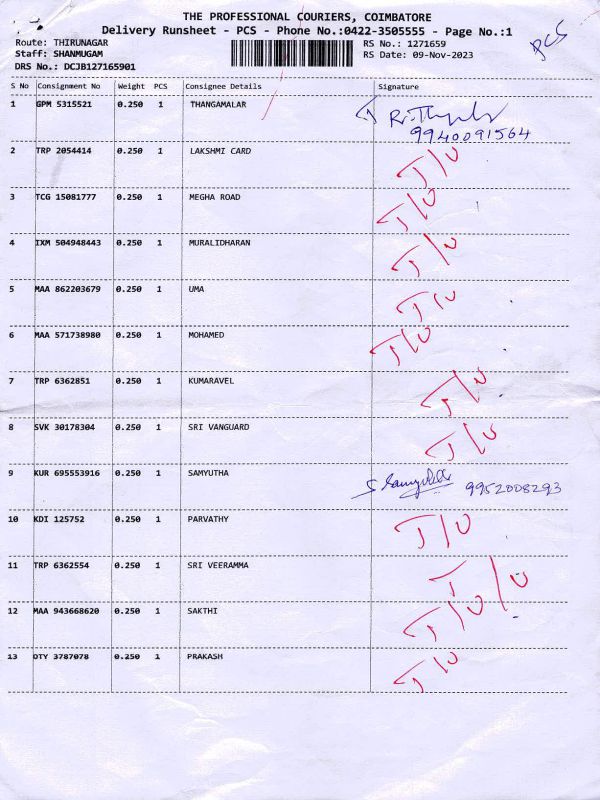 THE PROFESSIONAL COURIERS, COIMBATORE
Delivery Runsheet - PCS - Phone No.:0422-3505555 - Page No.:1
PCS
Route: THIRUNAGAR RS No.: 1271659
Staff: SHANMUGAM RS Date: 09-Nov-2023
DRS No.: DCJB127165901
S No Consignment No Weight PCS Consignee Details Signature
1 GPM 5315521 0.250 1 THANGAMALAR
9940091564
2 TRP 2054414 0.250 1 LAKSHMI CARD T/U
3 TCG 15081777 0.250 1 MEGHA ROAD T/U
4 IXM 504948443 0.250 1 MURALIDHARAN T/U
5 MAA 862203679 0.250 1 UMA T/U
6 MAA 571738980 0.250 1 MOHAMED T/U
7 TRP 6362851 0.250 1 KUMARAVEL T/U
8 SVK 30178304 0.250 1 SRI VANGUARD T/U
9 KUR 695553916 0.250 1 SAMYUTHA 9952008293
10 KDI 125752 0.250 1 PARVATHY T/U
11 TRP 6362554 0.250 1 SRI VEERAMMA T/U
12 MAA 943668620 0.250 1 SAKTHI T/U
13 OTY 3787078 0.250 1 PRAKASH T/U